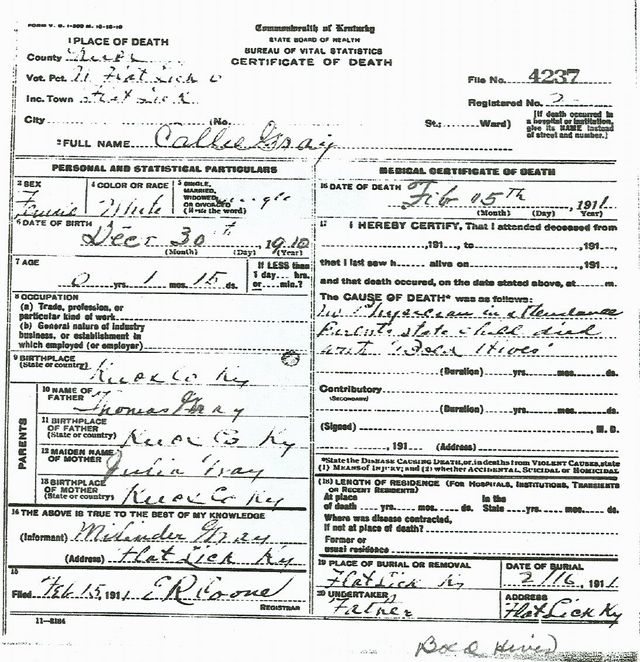 FORM V. S. 1-500 M. 10-10-10
Commonwealth of Kentucky
STATE BOARD OF HEALTH
BUREAU OF VITAL STATISTICS
CERTIFICATE OF DEATH
1 PLACE OF DEATH
County Knox
Vot. Pct. 11 Flat Lick
Inc. Town Flat Lick
City (No. St.; Ward)
File No. 4237
Registered No. 2
[If death occurred in a hospital or institution, give its NAME instead of street and number.]
2 FULL NAME Callie Gray
PERSONAL AND STATISTICAL PARTICULARS
3 SEX
Female
4 COLOR OR RACE
White
5 SINGLE, MARRIED, WIDOWED OR DIVORCED (Write the word)
Single
6 DATE OF BIRTH
Dect 30th, 1910
(Month) (Day) (Year)
7 AGE
0 yrs. 1 mos. 15 ds.
If LESS than 1 day....hrs. or....min.?
8 OCCUPATION
(a) Trade, profession, or
particular kind of work
(b) General nature of industry
business, or establishment in
which employed (or employer)
9 BIRTHPLACE
(State or country)
Knox Co Ky
PARENTS
10 NAME OF FATHER
Thomas Gray
11 BIRTHPLACE OF FATHER
(State or country) Knox Co Ky
12 MAIDEN NAME OF MOTHER
Julia Gray
13 BIRTHPLACE OF MOTHER
(State or country) Knox Co Ky
14 THE ABOVE IS TRUE TO THE BEST OF MY KNOWLEDGE
(Informant) Gray
(Address) Flat Lick Ky
15
Filed Feb 15, 1911
REGISTRAR
11-8184
MEDICAL CERTIFICATE OF DEATH
16 DATE OF DEATH
Feb 15th, 1911
(Month) (Day) (Year)
17 I HEREBY CERTIFY, That I attended deceased from
, 191..., to , 191...,
that I last saw h alive on , 191...,
and that death occured, on the date stated above, at m.
The CAUSE OF DEATH* was as follows:
no Physician in attendance
Parents state child died
with "Bold Hives"
(Duration) yrs. mos. ds.
Contributory
(SECONDARY)
(Duration) yrs. mos. ds.
(Signed) , M. D.
, 191 (Address)
*State the DISEASE CAUSING DEATH, or, in deaths from VIOLENT CAUSES, state
(1) MEANS OF INJURY; and (2) whether ACCIDENTAL, SUICIDAL or HOMICIDAL
(18) LENGTH OF RESIDENCE (FOR HOSPITALS, INSTITUTIONS, TRANSIENTS
OR RECENT RESIDENTS)
At place of death yrs. mos. ds. In the State yrs. mos. ds.
Where was disease contracted,
if not at place of death?
Former or
usual residence
19 PLACE OF BURIAL OR REMOVAL
Flat Lick Ky
DATE OF BURIAL
2/16, 1911
20 UNDERTAKER
Father
ADDRESS
Flat Lick Ky
Hives